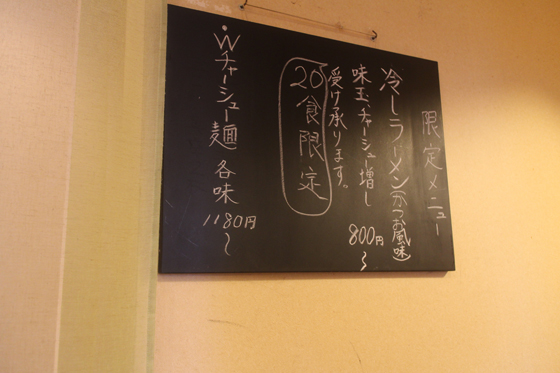 限定メニュー
冷しラーメン(かつお風味)
800円〜
味玉、チャーシュー増し
受け承ります。
20食限定
Wチャーシュー麺 各味
1180円〜